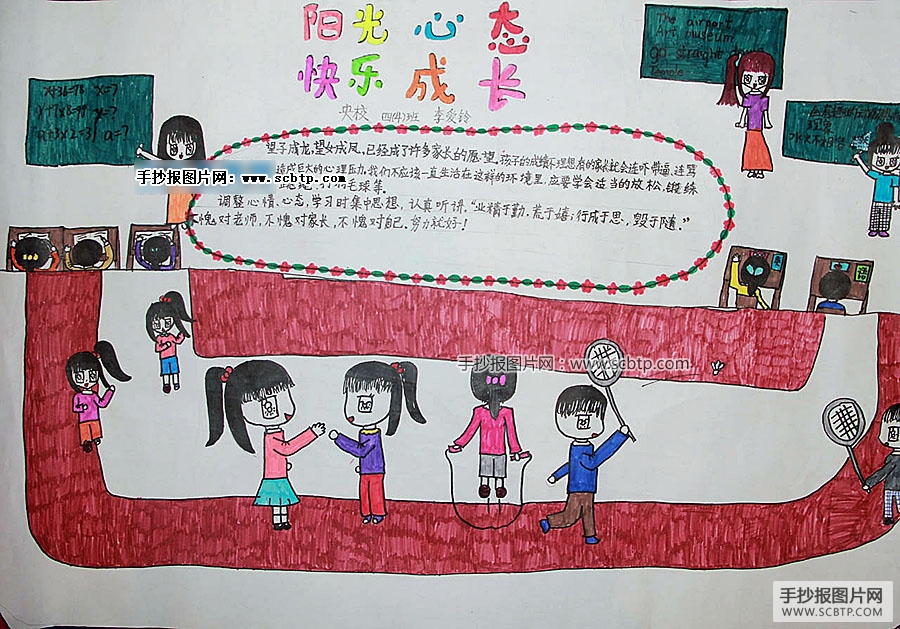 阳光 心态
快乐 成长
央校 四(4)班 李爱铃
The airport
Art museum
go straight
x+36=98 x=?
y+7x8=99 y=?
a+3x2=31 a=?
望子成龙,望女成凤,已经成了许多家长的愿望,孩子的成绩不理想有的家长就会连吓带逼,连骂
造成巨大的心理压力,我们不应该一直生活在这样的环境里,应要学会适当的放松,锻练
打羽毛球等.
调整心情、心态,学习时集中思想、认真听讲,"业精于勤.荒于嬉;行成于思,毁于随."
不愧对老师,不愧对家长,不愧对自己.努力就好!
手抄报图片网:www.scbtp.com
手抄报图片网:www.scbtp.com
手抄报图片网
WWW.SCBTP.COM